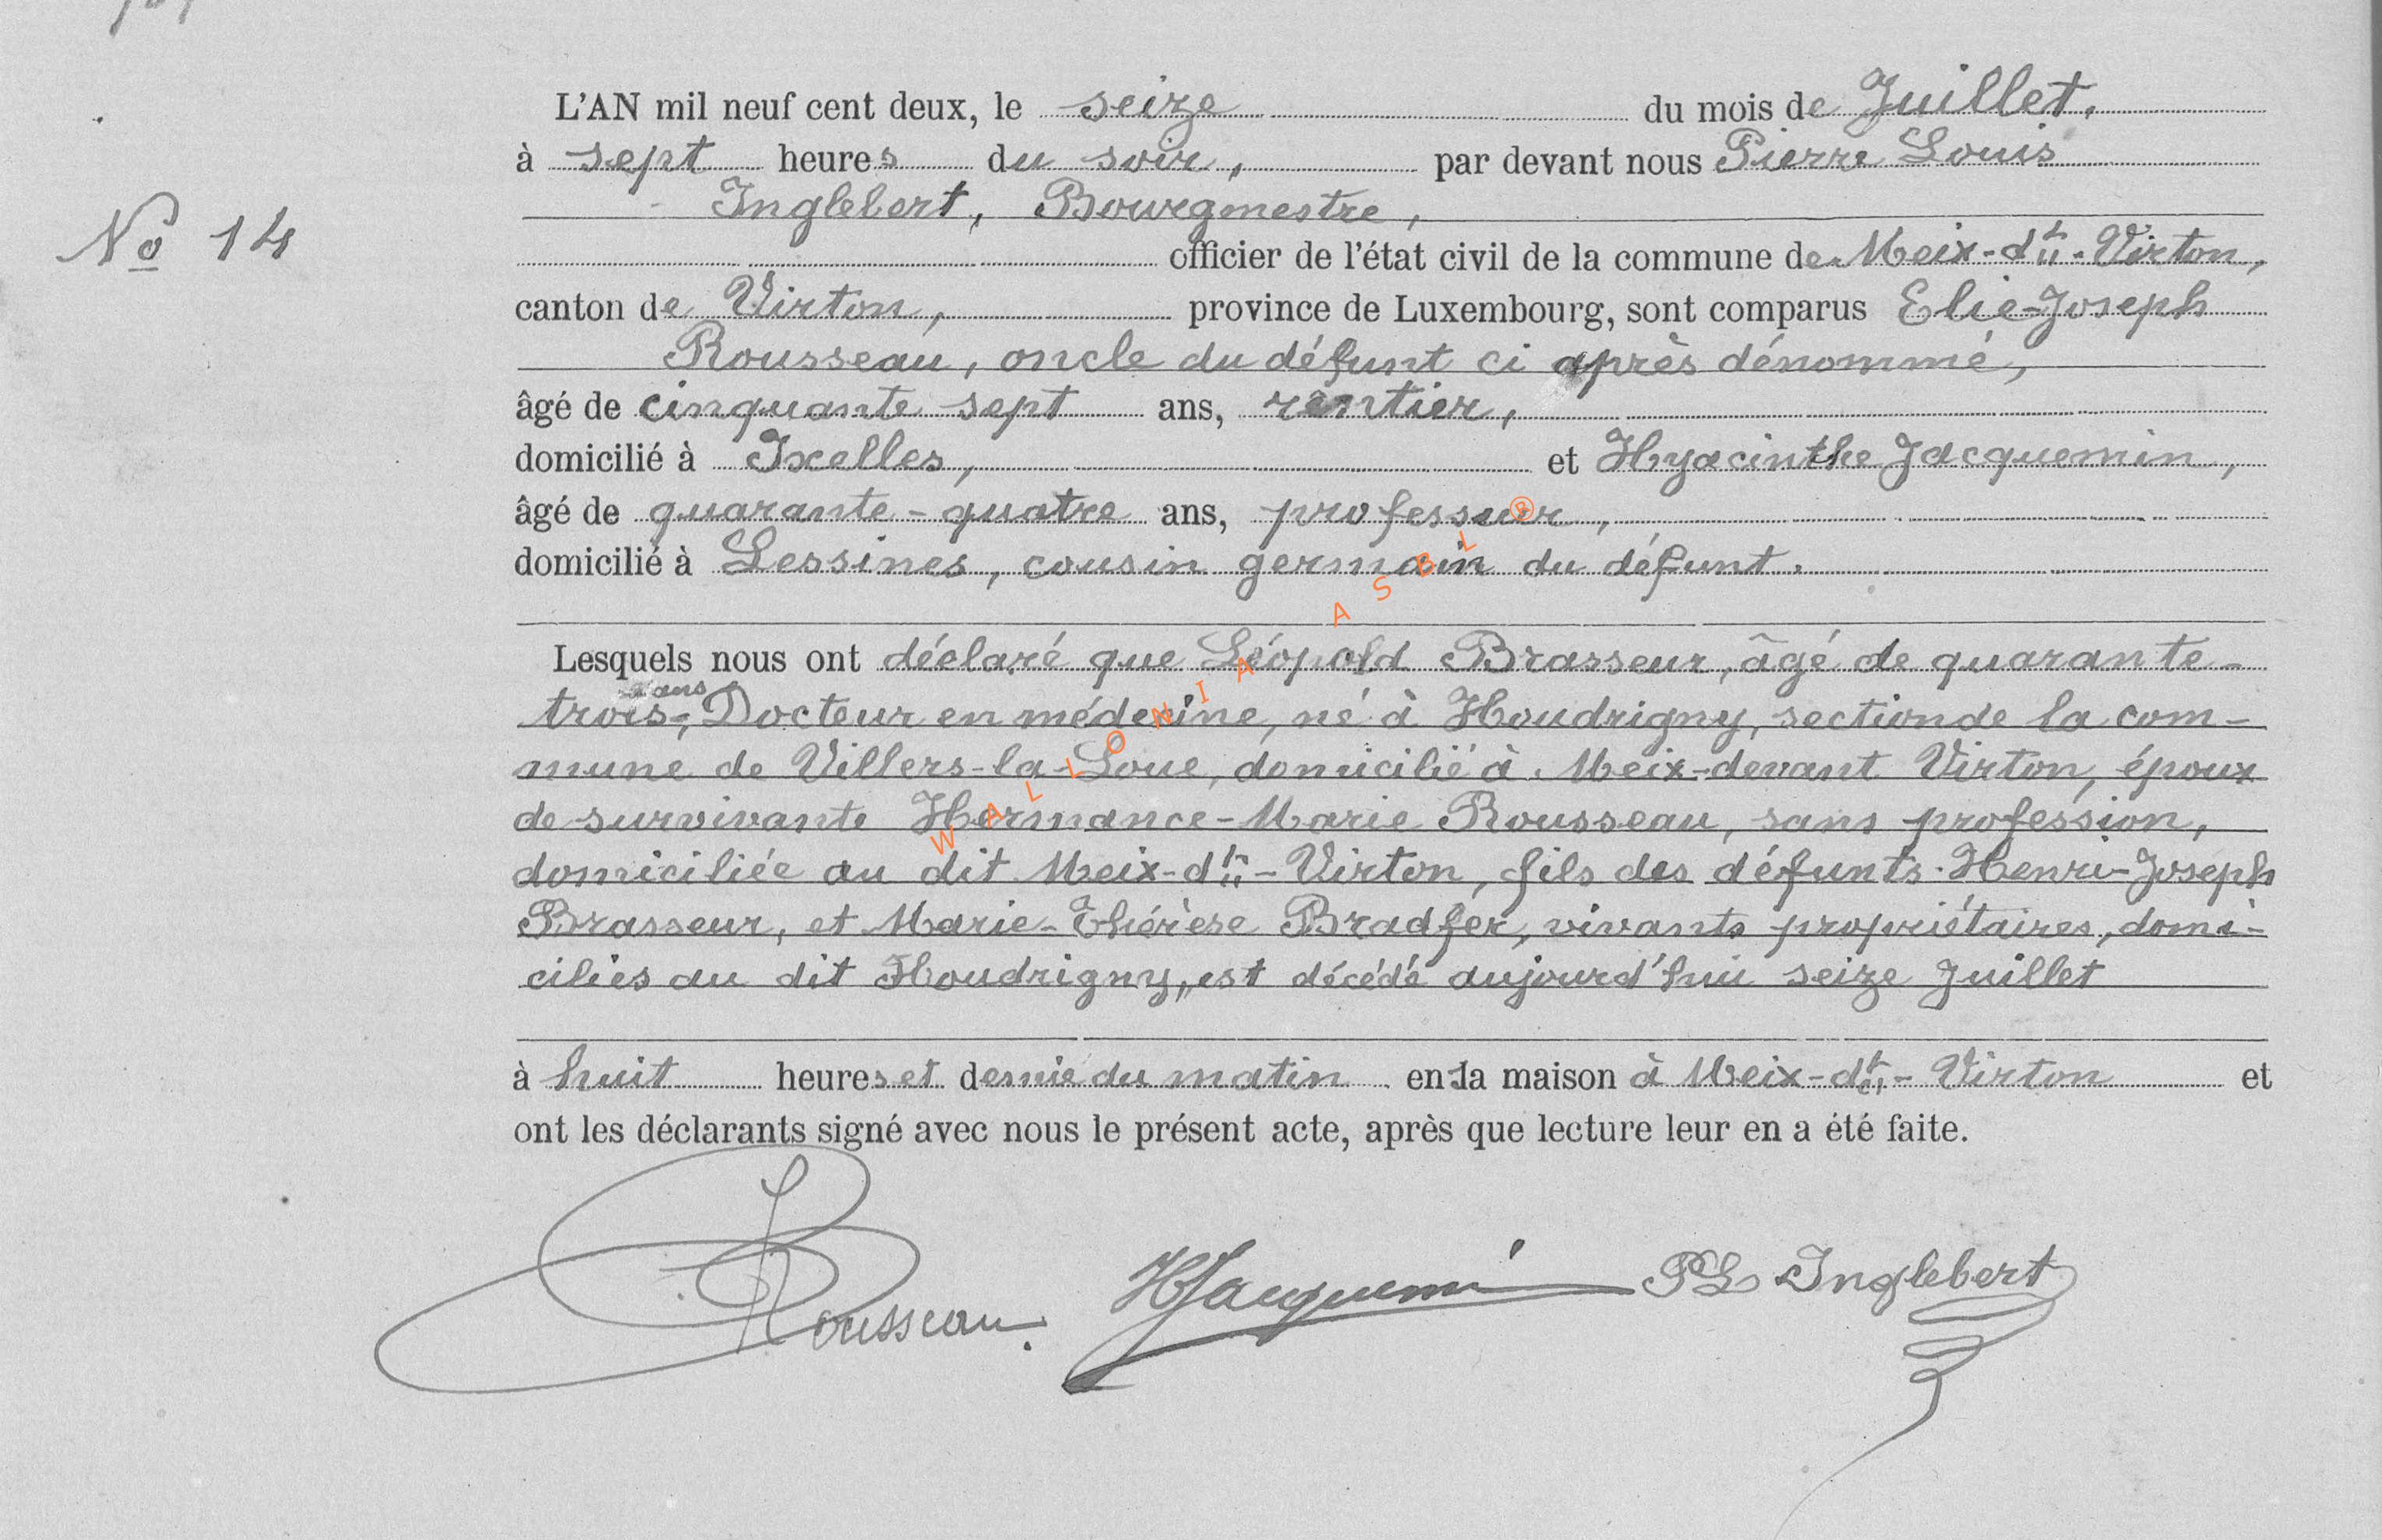 L'AN mil neuf cent deux, le seize du mois de Juillet,
à sept heures du soir, par devant nous Pierre Louis
Inglebert, Bourgmestre,
No 14
officier de l'état civil de la commune de Meix-dt-Virton,
canton de Virton, province de Luxembourg, sont comparus Elie-Joseph
Rousseau, oncle du défunt ci après dénommé,
âgé de cinquante sept ans, rentier,
domicilié à Ixelles, et Hyacinthe Jacquemin,
âgé de quarante-quatre ans, professeur,
domicilié à Lessines, cousin germain du défunt.
Lesquels nous ont déclaré que Léopold Brasseur, âgé de quarante-
trois ans, Docteur en médecine, né à Houdrigny, section de la com-
mune de Villers-la-Loue, domicilié à Meix-devant Virton, époux
de survivante Hermance-Marie Rousseau, sans profession,
domiciliée au dit Meix-dt-Virton, fils des défunts Henri-Joseph
Brasseur, et Marie-Thérèse Bradfer, vivants propriétaires, domi-
ciliés au dit Houdrigny, est décédé aujourd'hui seize Juillet
à huit heures et demie du matin en la maison à Meix-dt-Virton et
ont les déclarants signé avec nous le présent acte, après que lecture leur en a été faite.
Rousseau. HJacquemin PL Inglebert
WALLONIA ASBL ®